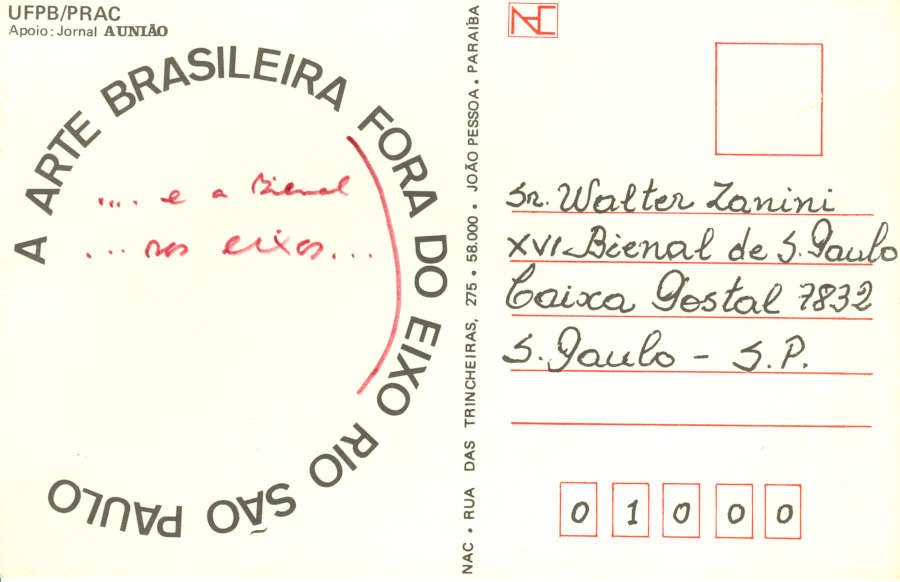 UFPB/PRAC
Apoio: Jornal A UNIÃO
A ARTE BRASILEIRA FORA DO EIXO RIO SÃO PAULO
.... e a Bienal
... nos eixos...
NAC • RUA DAS TRINCHEIRAS, 275 • 58.000 • JOÃO PESSOA • PARAÍBA
Sr. Walter Zanini
XVI Bienal de S. Paulo
Caixa Postal 7832
S. Paulo - S.P.
0 1 0 0 0